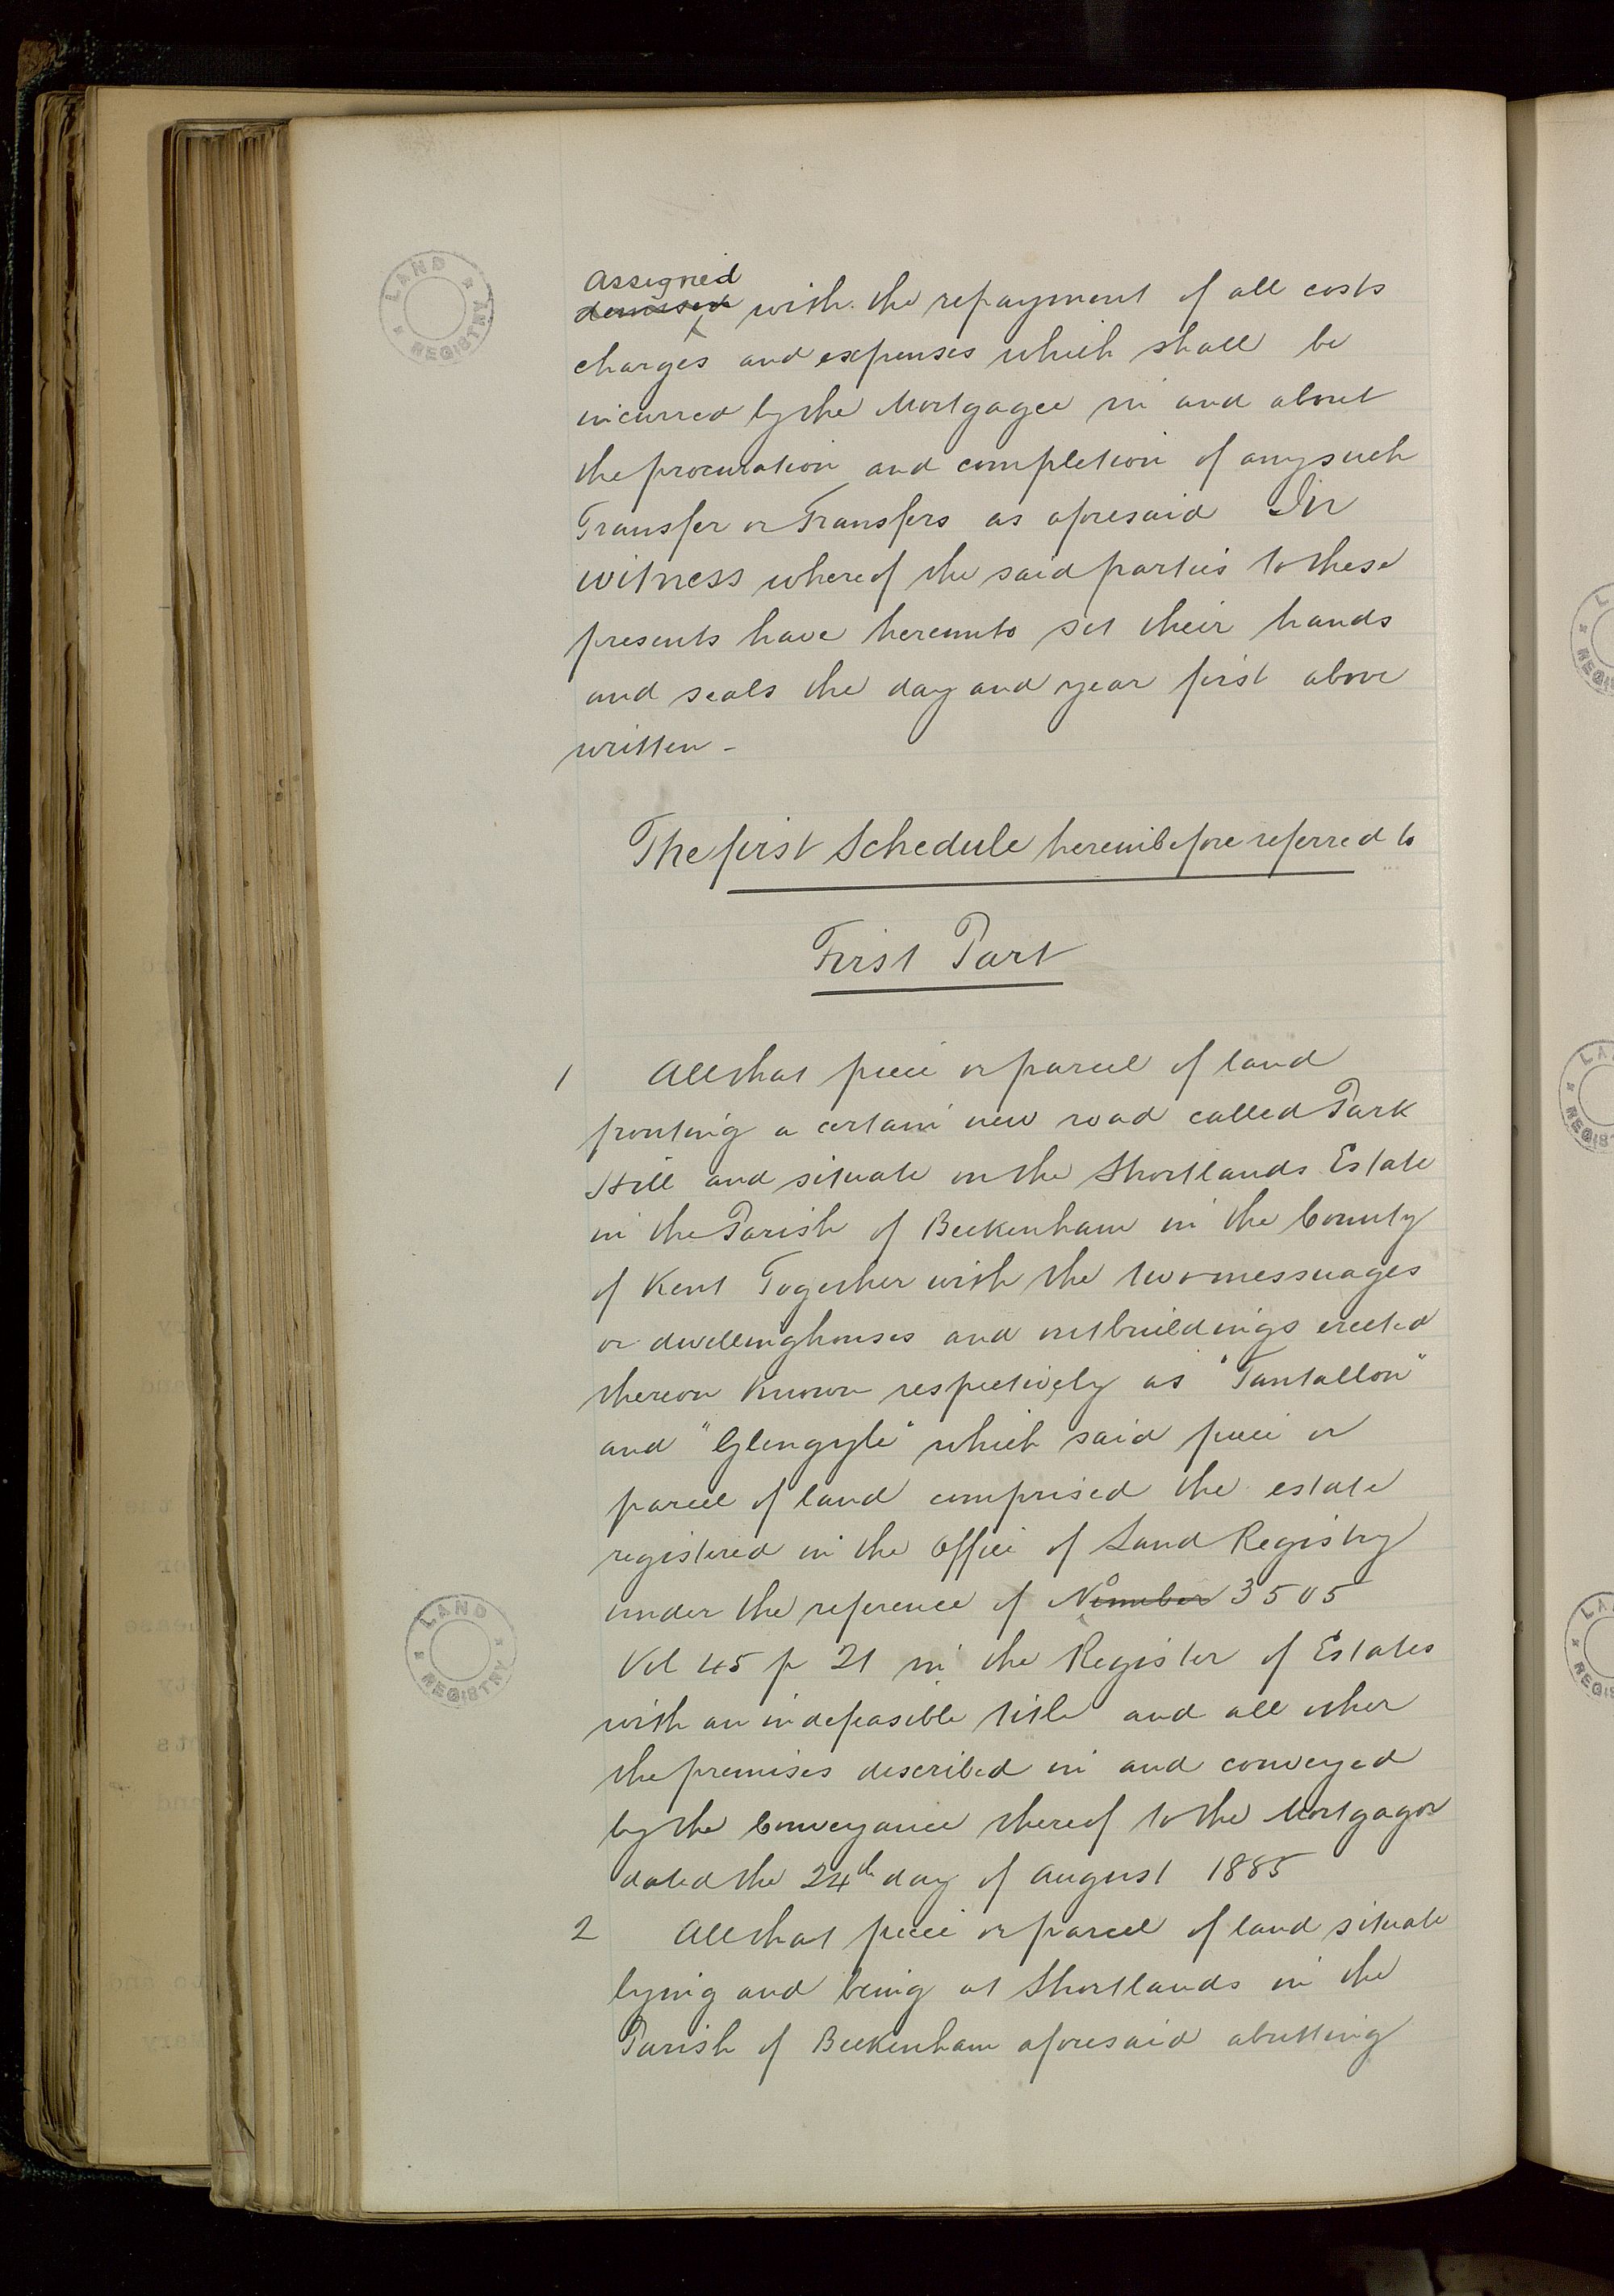 Assigned
demised with the repayment of all costs
charges and expenses which shall be
incurred by the Mortgagee in and about
the procuration and completion of any such
Transfer or Transfers as aforesaid In
witness whereof the said parties to these
presents have hereunto set their hands
and seals the day and year first above
written -
The first Schedule hereinbefore referred to
First Part
1 All that piece or parcel of land
fronting a certain new road called Park
Hill and situate on the Shortlands Estate
in the Parish of Beckenham in the County
of Kent Together with the two messuages
or dwellinghouses and outbuildings erected
thereon known respectively as "Tantallon"
and "Glengyle" which said piece or
parcel of land comprised the estate
registered in the Office of Land Registry
under the reference of Number 3505
Vol 45 p 21 in the Register of Estates
with an indefeasible title and all other
the premises described in and conveyed
by the Conveyance thereof to the Mortgagor
dated the 24th day of August 1885
2 All that piece or parcel of land situate
lying and being at Shortlands in the
Parish of Beckenham aforesaid abutting
LAND REGISTRY
LAND REGISTRY